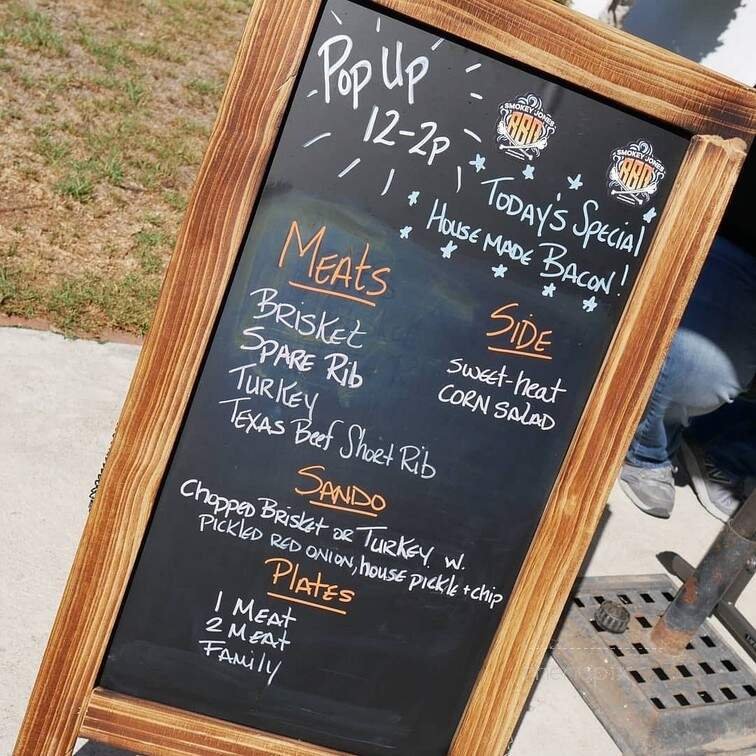 Pop Up
12-2p
SMOKEY JONES
BBQ
SMOKEY JONES
BBQ
TODAY'S Special
HOUSE MADE BACON!
MEATS
BRISKET
SPARE Rib
TURKEY
TEXAS Beef Short Rib
SIDE
SWEET-heat
CORN SALAD
SANDO
Chopped Brisket or Turkey w.
PICKLED RED ONION, house pickle + chip
PLATES
1 MEAT
2 MEAT
FAMILY